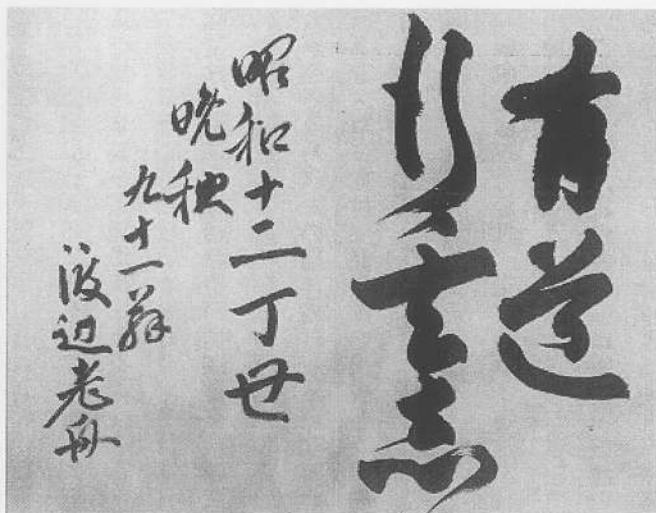 有道
行志
昭和十二丁丑
晩秋
九十一翁
渡辺老舟